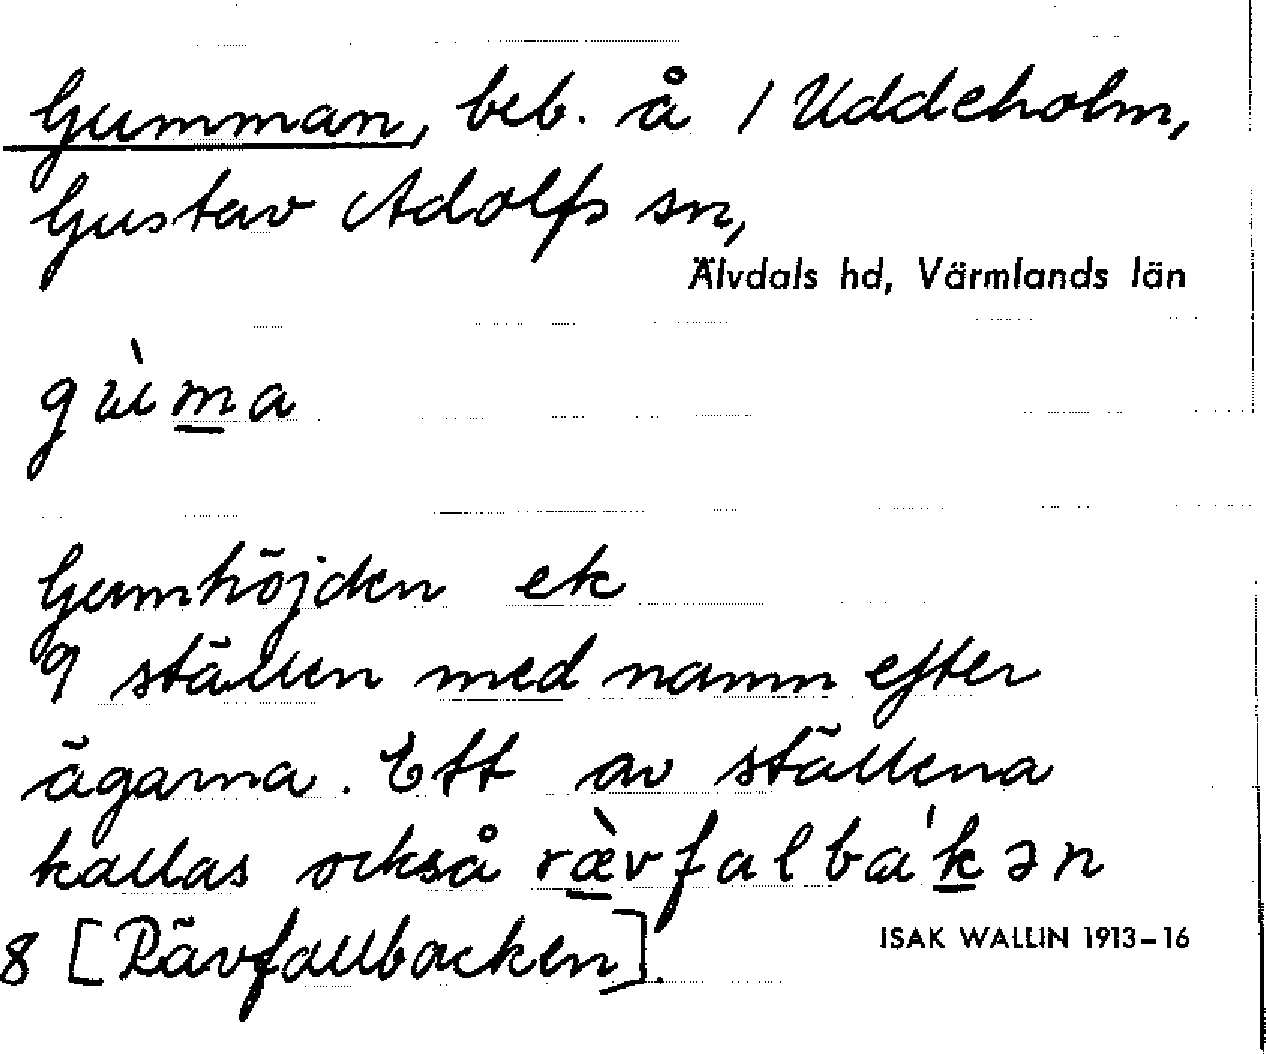 Gumman, beb. å 1 Uddeholm,
Gustav Adolfs sn,
Älvdals hd, Värmlands län
gu̇̀ma
Gumhöjden ek
9 ställen med namn efter
ägarna. Ett av ställena
kallas också ræ̀vfalbákən
8 [Rävfallbacken].
ISAK WALLIN 1913-16